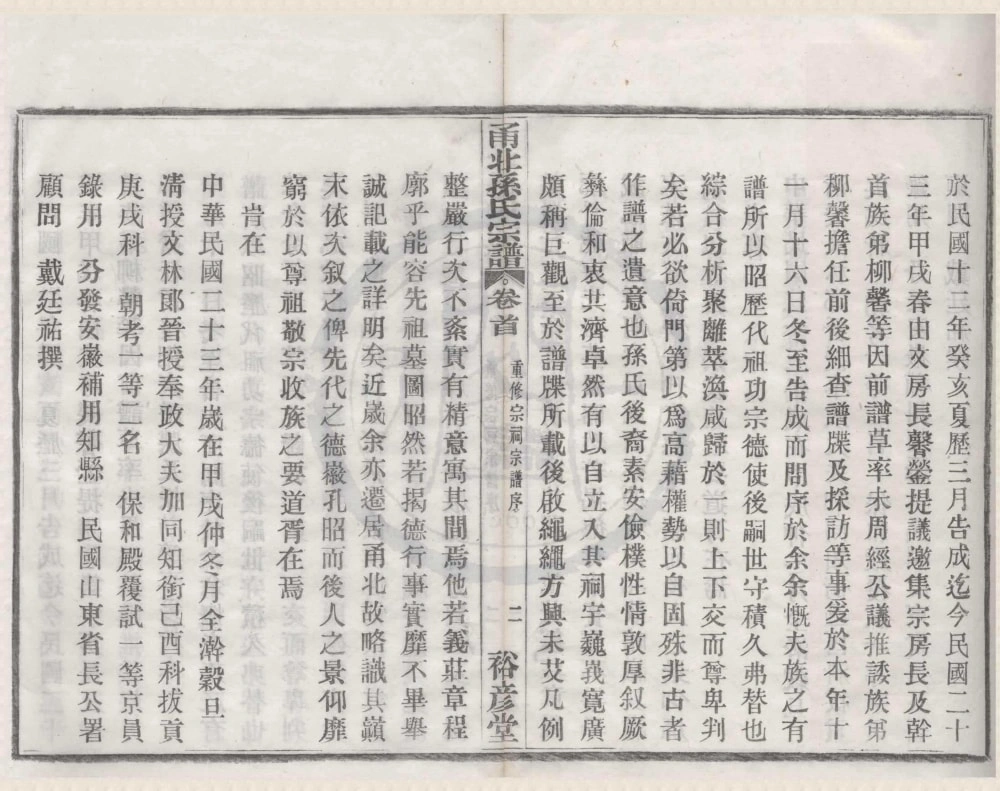 於民國十三年癸亥夏歷三月告成迄今民國二十
三年甲戌春由文房長馨鎣提議邀集宗房長及幹
首族弟柳馨等因前譜草率未周經公議推諉族弟
柳馨擔任前後細查譜牒及採訪等事爰於本年十
一月十六日冬至告成而問序於余余慨夫族之有
譜所以昭歷代祖功宗德使後嗣世守積久弗替也
綜合分析聚離萃渙咸歸於一則上下交而尊卑判
矣若必欲倚門第以爲高藉權勢以自固殊非古者
作譜之遺意也孫氏後裔素安儉樸性情敦厚叙厥
彝倫和衷共濟卓然有以自立入其祠宇巍峩寬廣
頗稱巨觀至於譜牒所載後啟繩繩方興未艾凡例
甬北孫氏宗譜 卷首 重修宗祠宗譜序 二 裕彦堂
整嚴行次不紊實有精意寓其間焉他若義莊章程
廓乎能容先祖墓圖昭然若揭德行事實靡不畢舉
誠記載之詳明矣近歲余亦遷居甬北故略識其巔
末依次叙之俾先代之德徽孔昭而後人之景仰靡
窮於以尊祖敬宗收族之要道胥在焉
中華民國二十三年歲在甲戌仲冬月全澣穀旦
清授文林郎晉授奉政大夫加同知銜己酉科拔貢
庚戌科 朝考一等二名 保和殿覆試一等京員
錄用 分發安徽補用知縣 民國山東省長公署
顧問 戴廷祐撰